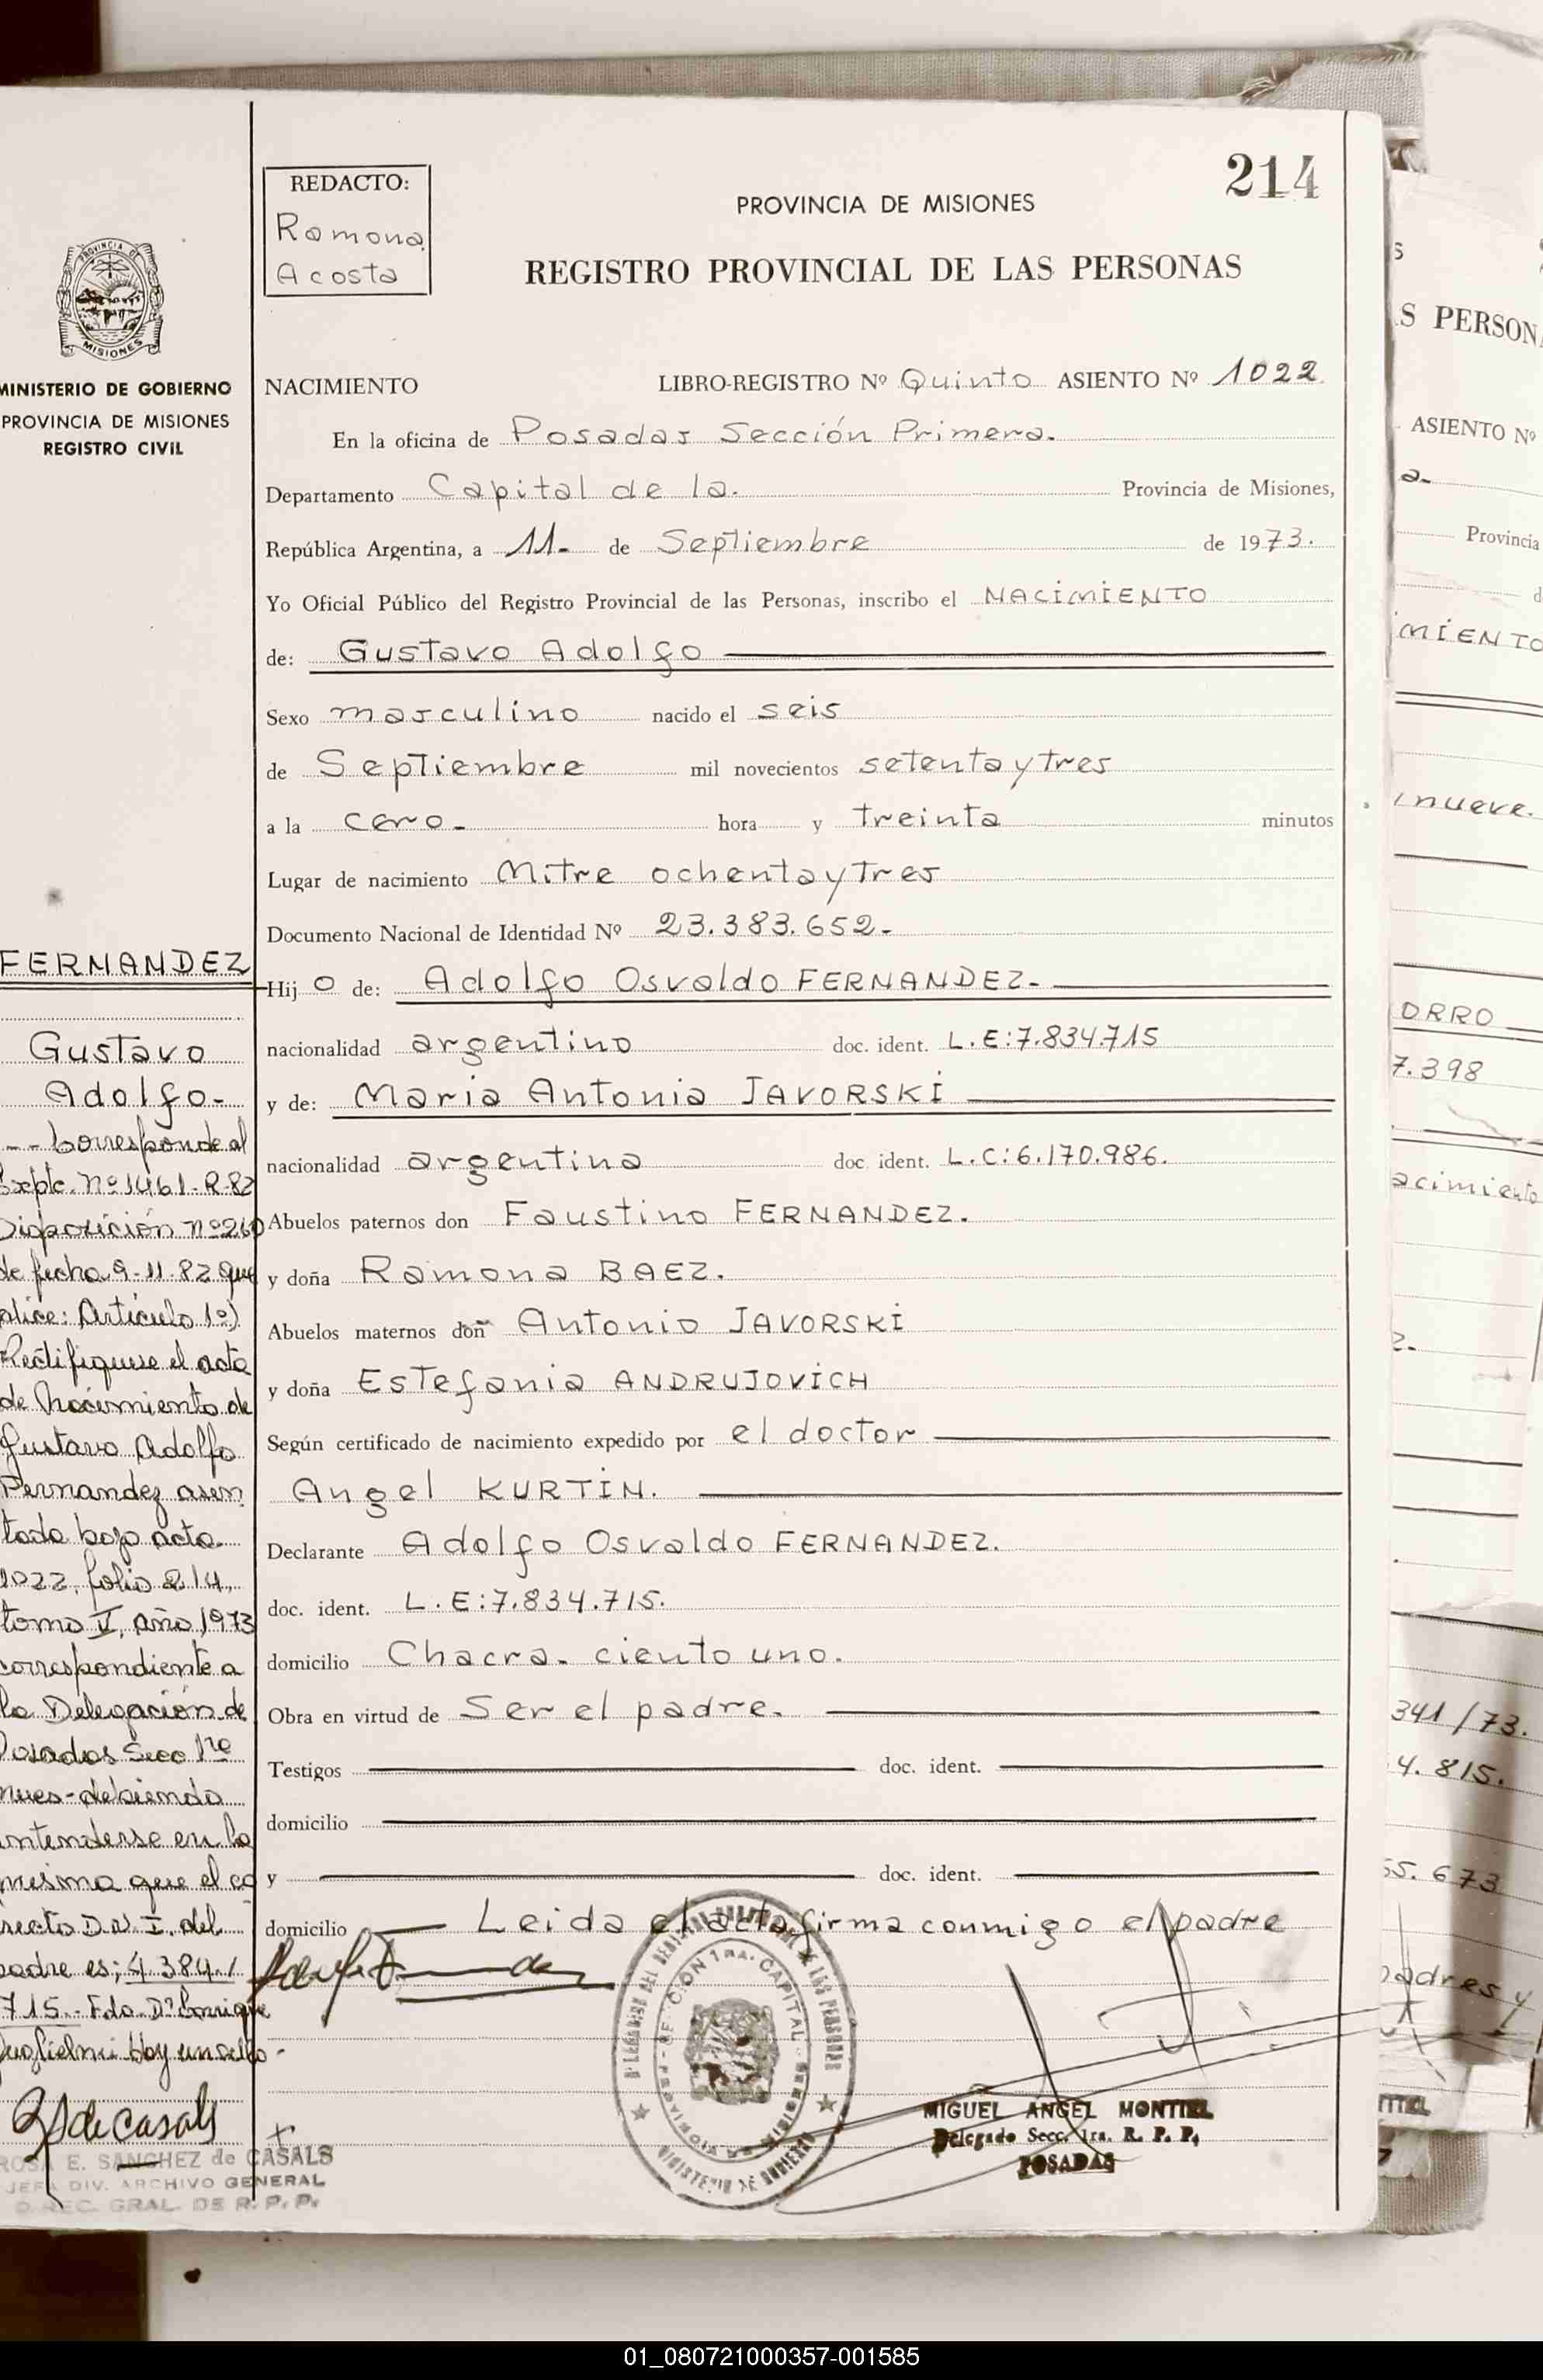 214
REDACTO:
Ramona
Acosta
PROVINCIA DE MISIONES
REGISTRO PROVINCIAL DE LAS PERSONAS
PROVINCIA DE
MISIONES
MINISTERIO DE GOBIERNO
PROVINCIA DE MISIONES
REGISTRO CIVIL
NACIMIENTO LIBRO-REGISTRO Nº Quinto ASIENTO Nº 1022
En la oficina de Posadas Sección Primera.
Departamento Capital de la. Provincia de Misiones,
República Argentina, a 11- de Septiembre de 1973.
Yo Oficial Público del Registro Provincial de las Personas, inscribo el NACIMIENTO
de: Gustavo Adolfo
Sexo masculino nacido el seis
de Septiembre mil novecientos setenta y tres
a la cero- hora y treinta minutos
Lugar de nacimiento Mitre ochenta y tres
Documento Nacional de Identidad Nº 23.383.652-
Hijo de: Adolfo Osvaldo FERNANDEZ-
nacionalidad argentino doc. ident. L.E:7.834.715
y de: Maria Antonia JAVORSKI
nacionalidad argentina doc. ident. L.C:6.170.986.
Abuelos paternos don Faustino FERNANDEZ.
y doña Ramona BAEZ.
Abuelos maternos don Antonio JAVORSKI
y doña Estefania ANDRUJOVICH
Según certificado de nacimiento expedido por el doctor
Angel KURTIN.
Declarante Adolfo Osvaldo FERNANDEZ.
doc. ident. L.E:7.834.715.
domicilio Chacra- ciento uno.
Obra en virtud de Ser el padre.
Testigos doc. ident.
domicilio
y doc. ident.
domicilio Leida el acta firma conmigo el padre
MIGUEL ANGEL MONTIEL
Delegado Secc. 1ra. R. P. P.
POSADAS
FERNANDEZ
Gustavo
Adolfo-
-- Corresponde al
Expte. nº 1461-R-82
Disposición nº 260
de fecha 9-11-82 que
dice: Artículo 1º)
Rectifiquese el acta
de Nacimiento de
Gustavo Adolfo
Fernandez asen
tada bajo acta
1022, folio 214,
tomo V, año 1973
correspondiente a
la Delegación de
Posadas Secc 1ra
pues- debiendo
entenderse en la
misma que el co
rrecto D.N.I. del
padre es: 4.384.
715.- Fdo. Dº Enrique
Guglielmi Hay un sello-
ROSA E. SANCHEZ de CASALS
JEFA DIV. ARCHIVO GENERAL
DIREC. GRAL. DE R. P. P.
S PERSONA
ASIENTO Nº
a-
Provincia
MIENTO
nueve.
ORRO
7.398
acimiento
341/73.
4.815.
55.673
padres y
01_080721000357-001585